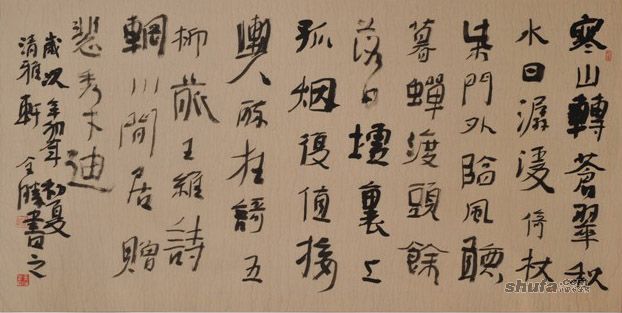 寒山轉蒼翠秋
水日潺湲倚杖
柴門外臨風聽
暮蟬渡頭餘
落日墟裏上
孤烟復值接
輿醉狂謌五
柳前王維詩
輞川閒居贈
裴秀才迪
歲次年初夏
清雅軒全勝書之